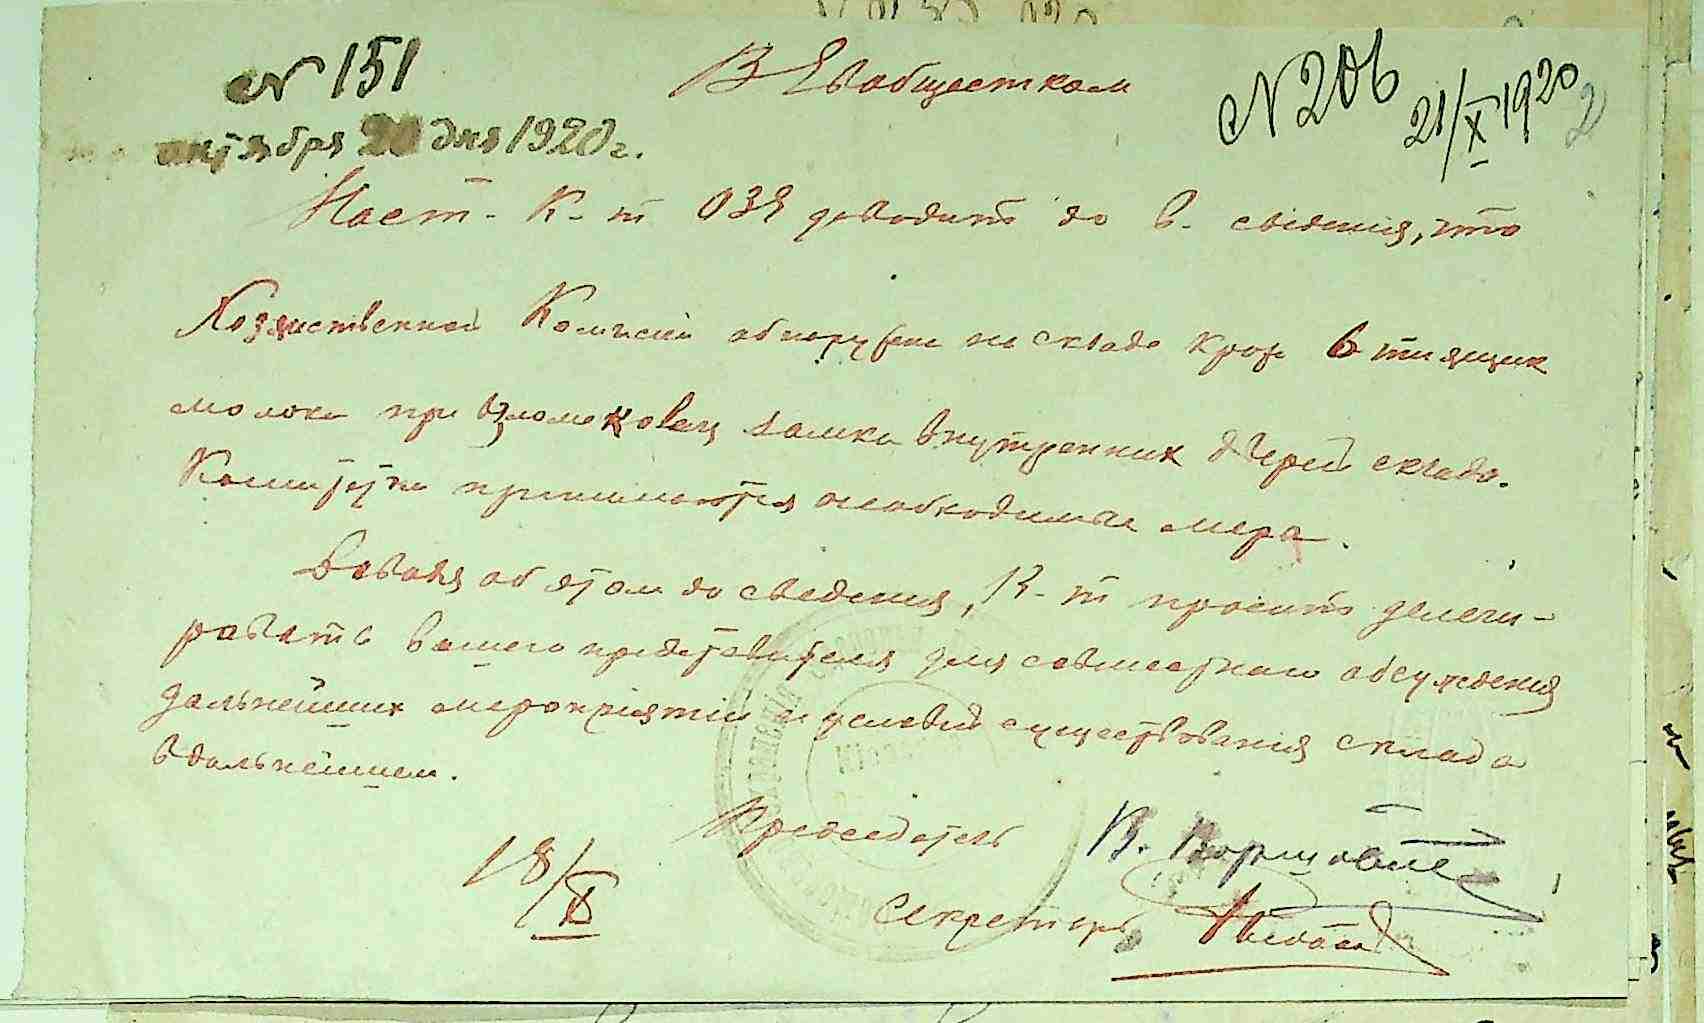 № 151
В Евобщестком
№ 206
21/X 1920
2
октября 20 дня 1920 г.
Наст. К-т ОЗЕ доводит до В. сведения, что
Хозяиственной Комисией обнаружен на складе краж 6ти ящик
молока при замка внутренних дверей склада.
Комитетом принимаются необходимые мера.
Доводя об этом до сведения, К-т просит делеги-
ровать вашего представителя для совместного обсуждения
дальнейших мероприятий и условий существования склада
в дальнейшем.
Председатель В.
18/X
Секретарь